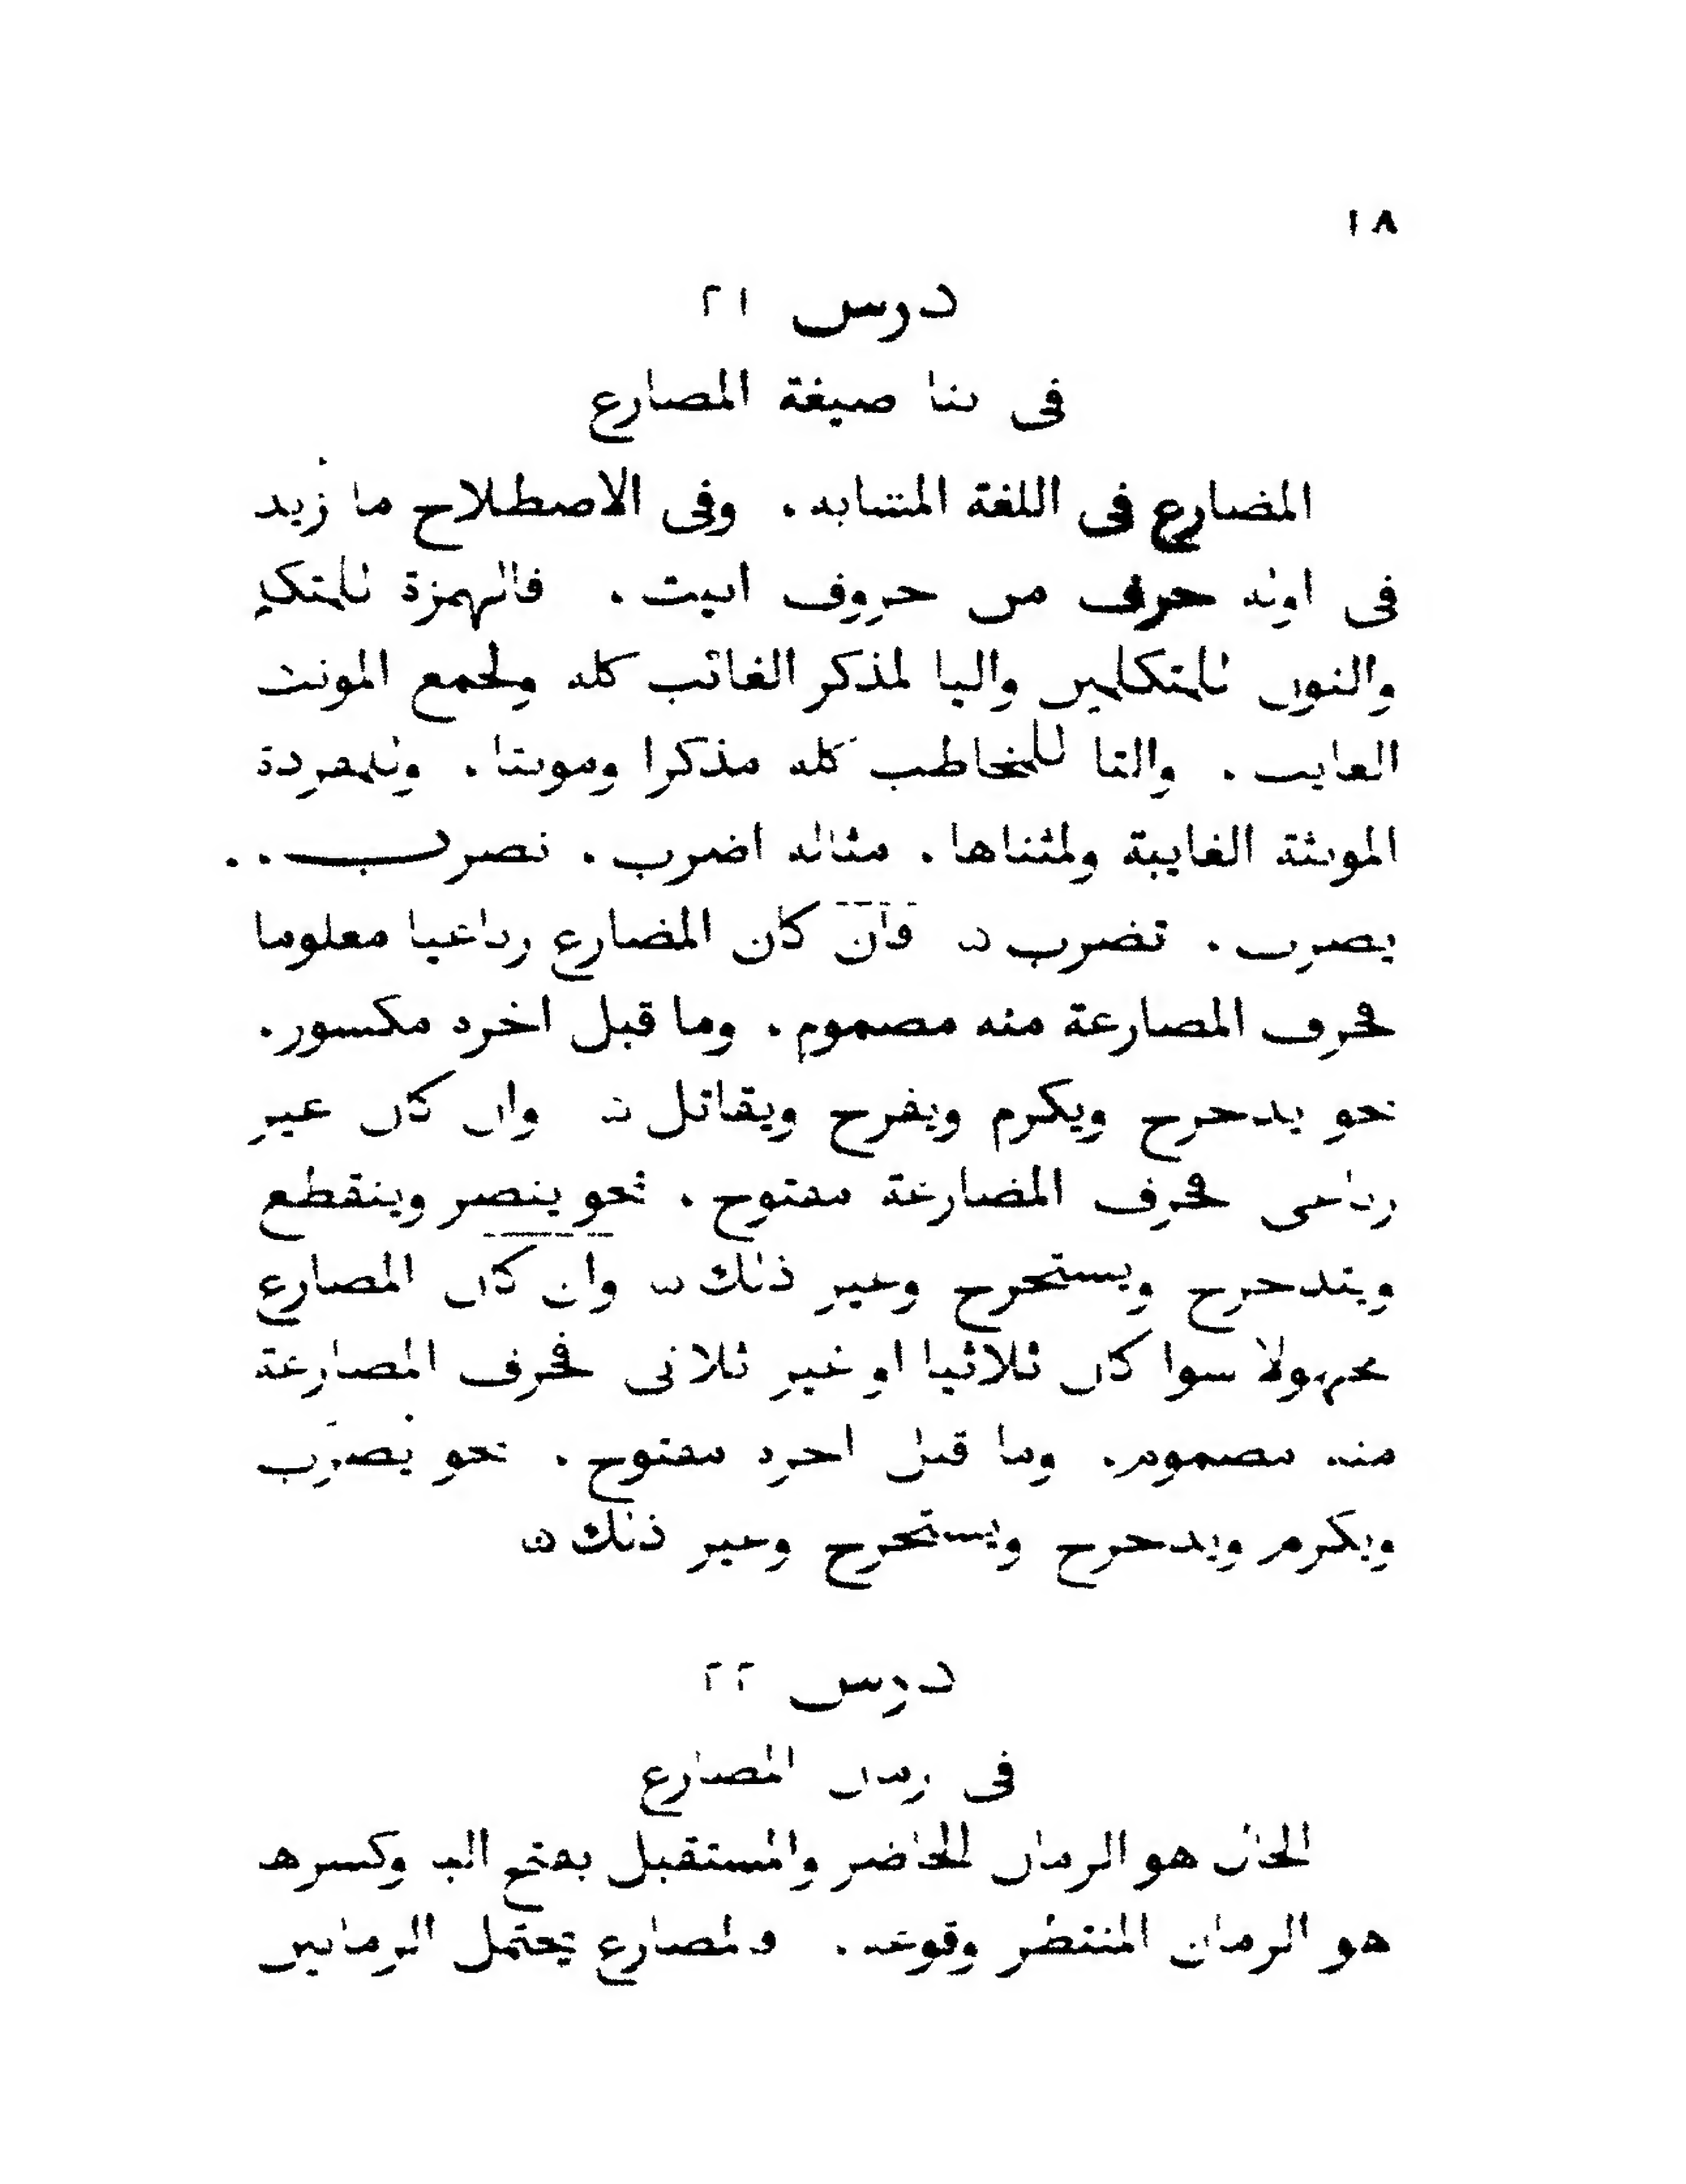 ١٨
درس ٢١
فى بنا صيغة المضارع
المضارع فى اللغة المتشابه. وفى الاصطلاح ما زُيد
فى اوله حرف من حروف اتيت. فالهمزة للمتكلم
والنون للمتكلمين واليا لمذكر الغائب كله ولجمع المونث
الغايب. والتا للمخاطب كله مذكرا ومونثا. وللمفردة
المونثة الغايبة ولمثناها. مثاله اضرب. نضرب.
يضرب. تضرب ۞ فان كان المضارع رباعيا معلوما
فحرف المضارعة منه مضموم. وما قبل اخره مكسور.
نحو يدحرج ويكرم ويفرح ويقاتل ۞ وان كان غير
رباعى فحرف المضارعة مفتوح. نحو ينصر وينقطع
ويتدحرج ويستخرج وغير ذلك ۞ وان كان المضارع
مجهولا سوا كان ثلاثيا او غير ثلاثى فحرف المضارعة
منه مضموم. وما قبل اخره مفتوح. نحو يُضرَب
ويكرم ويدحرج ويستخرج وغير ذلك ۞
درس ٢٢
فى زمان المضارع
الحال هو الزمان الحاضر والمستقبل بفتح البا وكسرها
هو الزمان المنتظر وقوعه. والمضارع يحتمل الزمانين